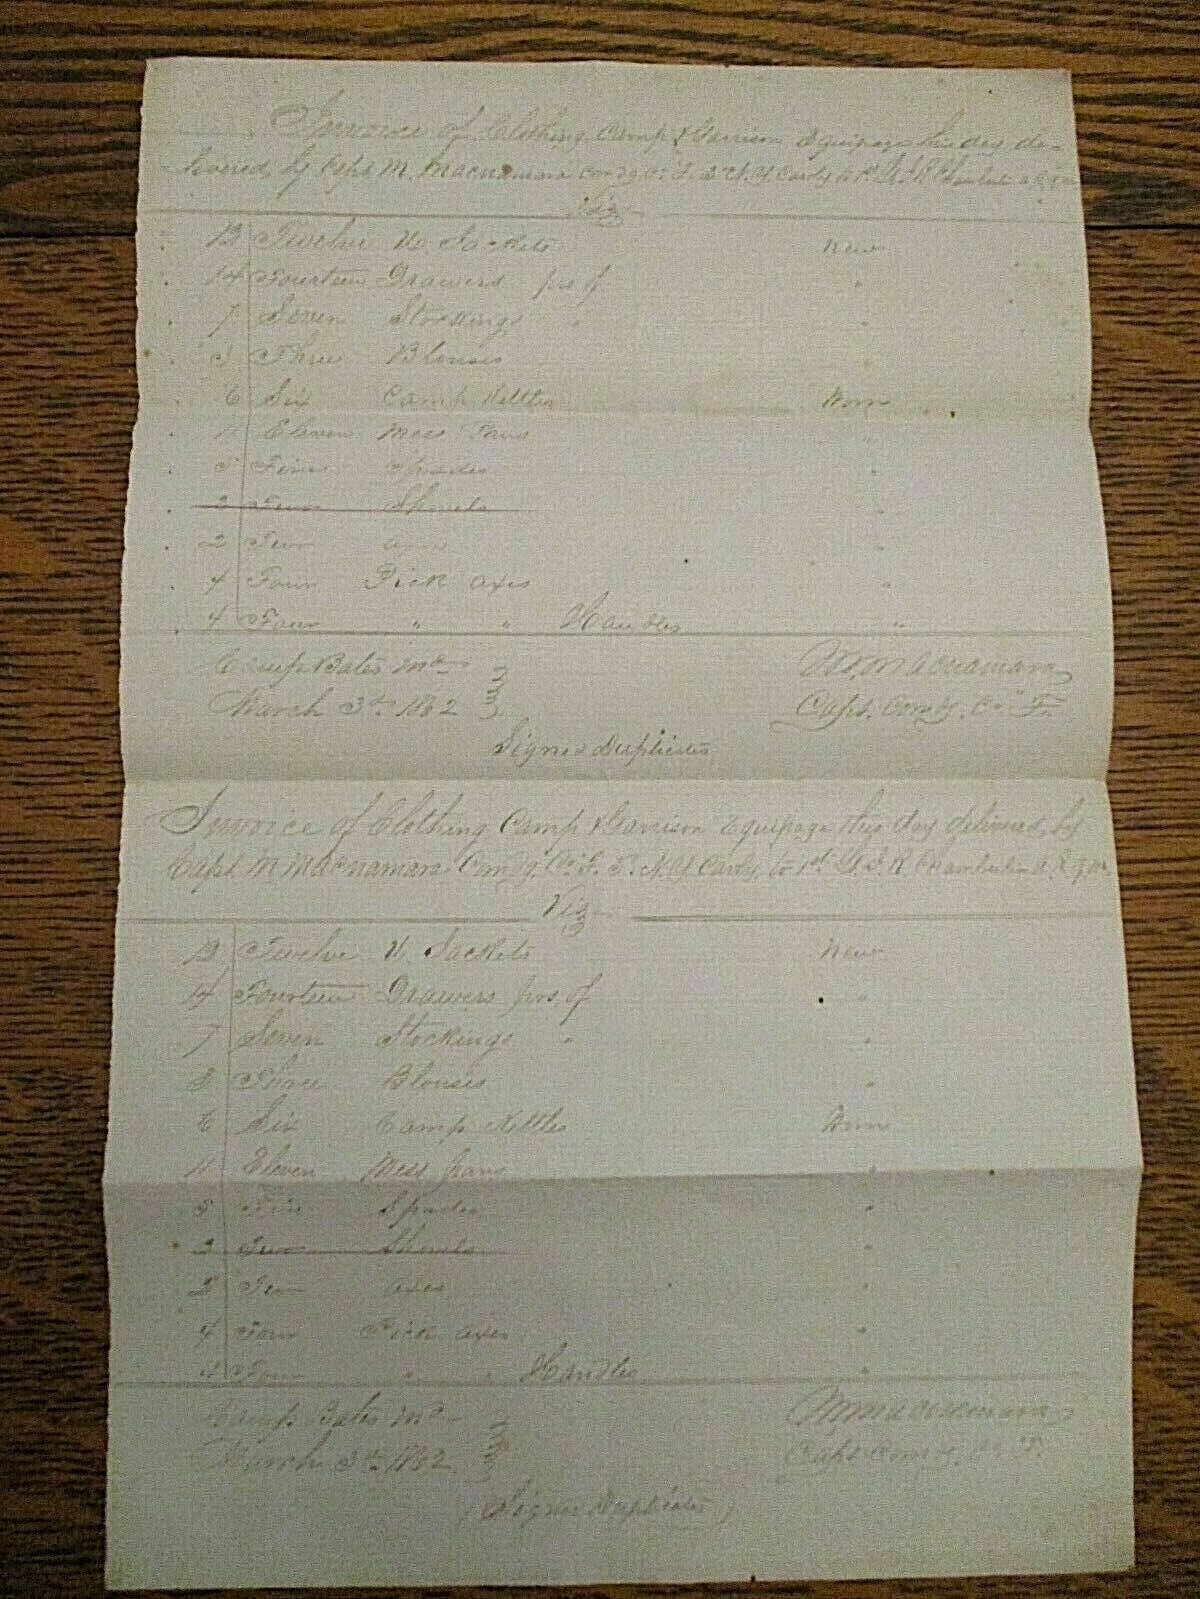 Invoice of Clothing Camp & Garrison Equipage this day de-
livered by Capt M. Macnamara Comdg Co. F. N.Y Cavly to 1st R Chamberlin
Viz
12 Twelve U. Jackets New
14 Fourteen Drawers prs of "
7 Seven Stockings " "
3 Three Blouses "
6 Six Camp Kettles Worn
11 Eleven Mess Pans "
5 Five Spades "
2 Two Shovels "
2 Two axes "
4 Four Pick axes "
4 Four " " Handles "
Camp Bates Md
March 3d. 1862
M Macnamara
Capt. Comdg. Co. F.
Signed Duplicates
Invoice of Clothing Camp & Garrison Equipage this day delivered by
Capt. M Macnamara Comdg. Co. F. N.Y Cavly to 1st R Chamberlin
Viz
12 Twelve U. Jackets New
14 Fourteen Drawers prs. of "
7 Seven Stockings " "
3 Three Blouses "
6 Six Camp Kettles Worn
11 Eleven Mess pans "
5 Five Spades "
2 Two Shovels "
2 Two axes "
4 Four Pick axes "
4 Four " " Handles "
Camp Bates Md
March 3d. 1862
M Macnamara
Capt Comdg. Co. F.
(Signed Duplicates)